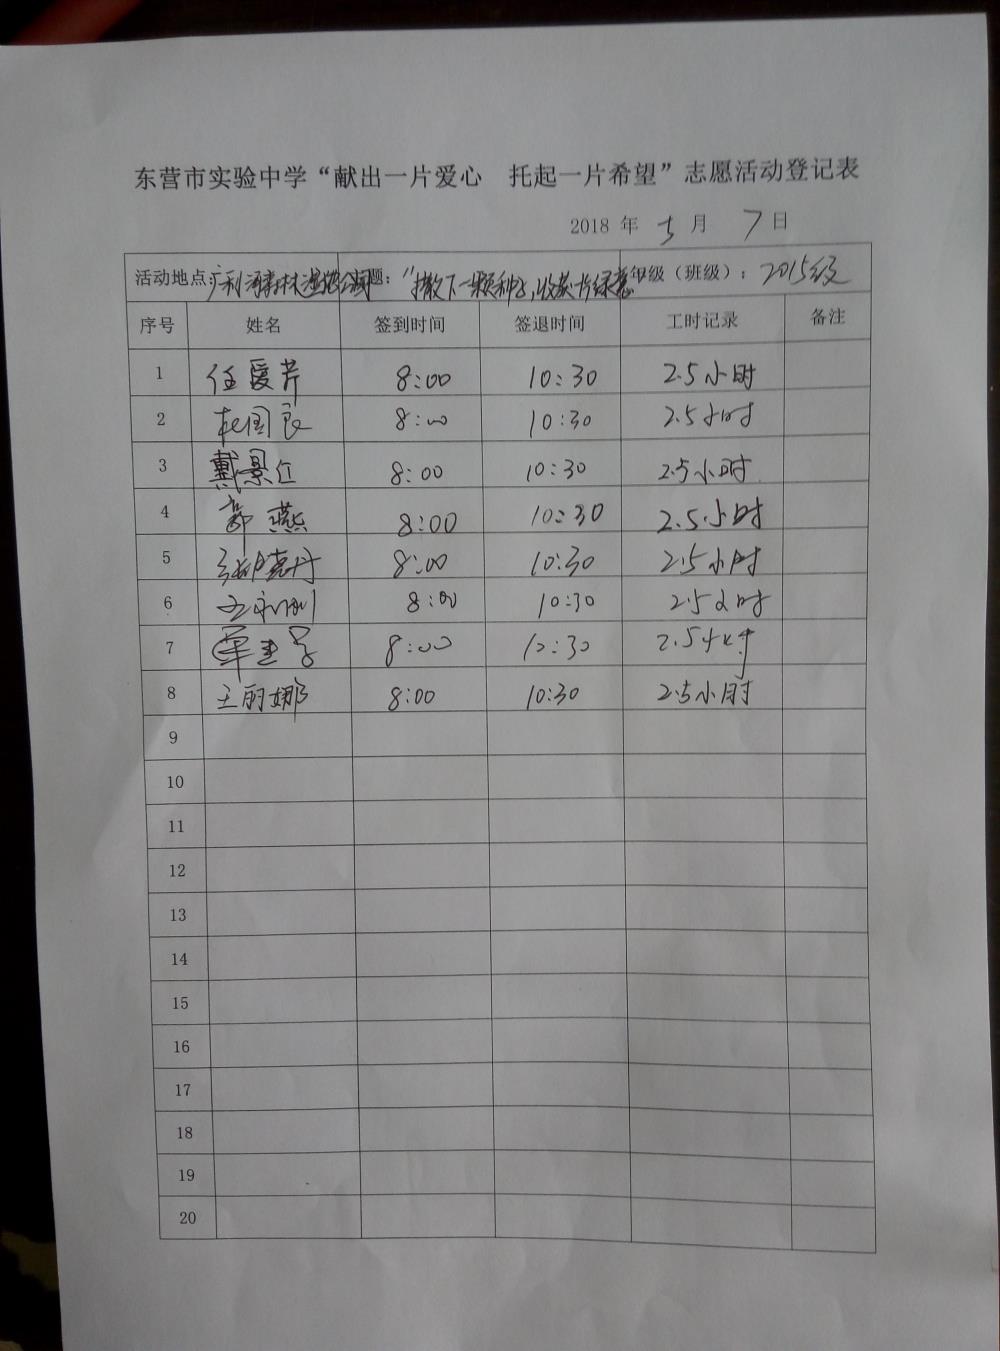 东营市实验中学“献出一片爱心 托起一片希望”志愿活动登记表
2018 年 5 月 7 日
活动地点：广利河森林湿地公园 题：“撒下一颗种子，收获一片绿意” 年级（班级）：2015级
序号 姓名 签到时间 签退时间 工时记录 备注
1 任爱芹 8:00 10:30 2.5小时
2 杜国良 8:00 10:30 2.5小时
3 戴景仁 8:00 10:30 2.5小时
4 郭燕 8:00 10:30 2.5小时
5 张晓丹 8:00 10:30 2.5小时
6 8:00 10:30 2.5小时
7 8:00 10:30 2.5小时
8 王丽娜 8:00 10:30 2.5小时
9
10
11
12
13
14
15
16
17
18
19
20